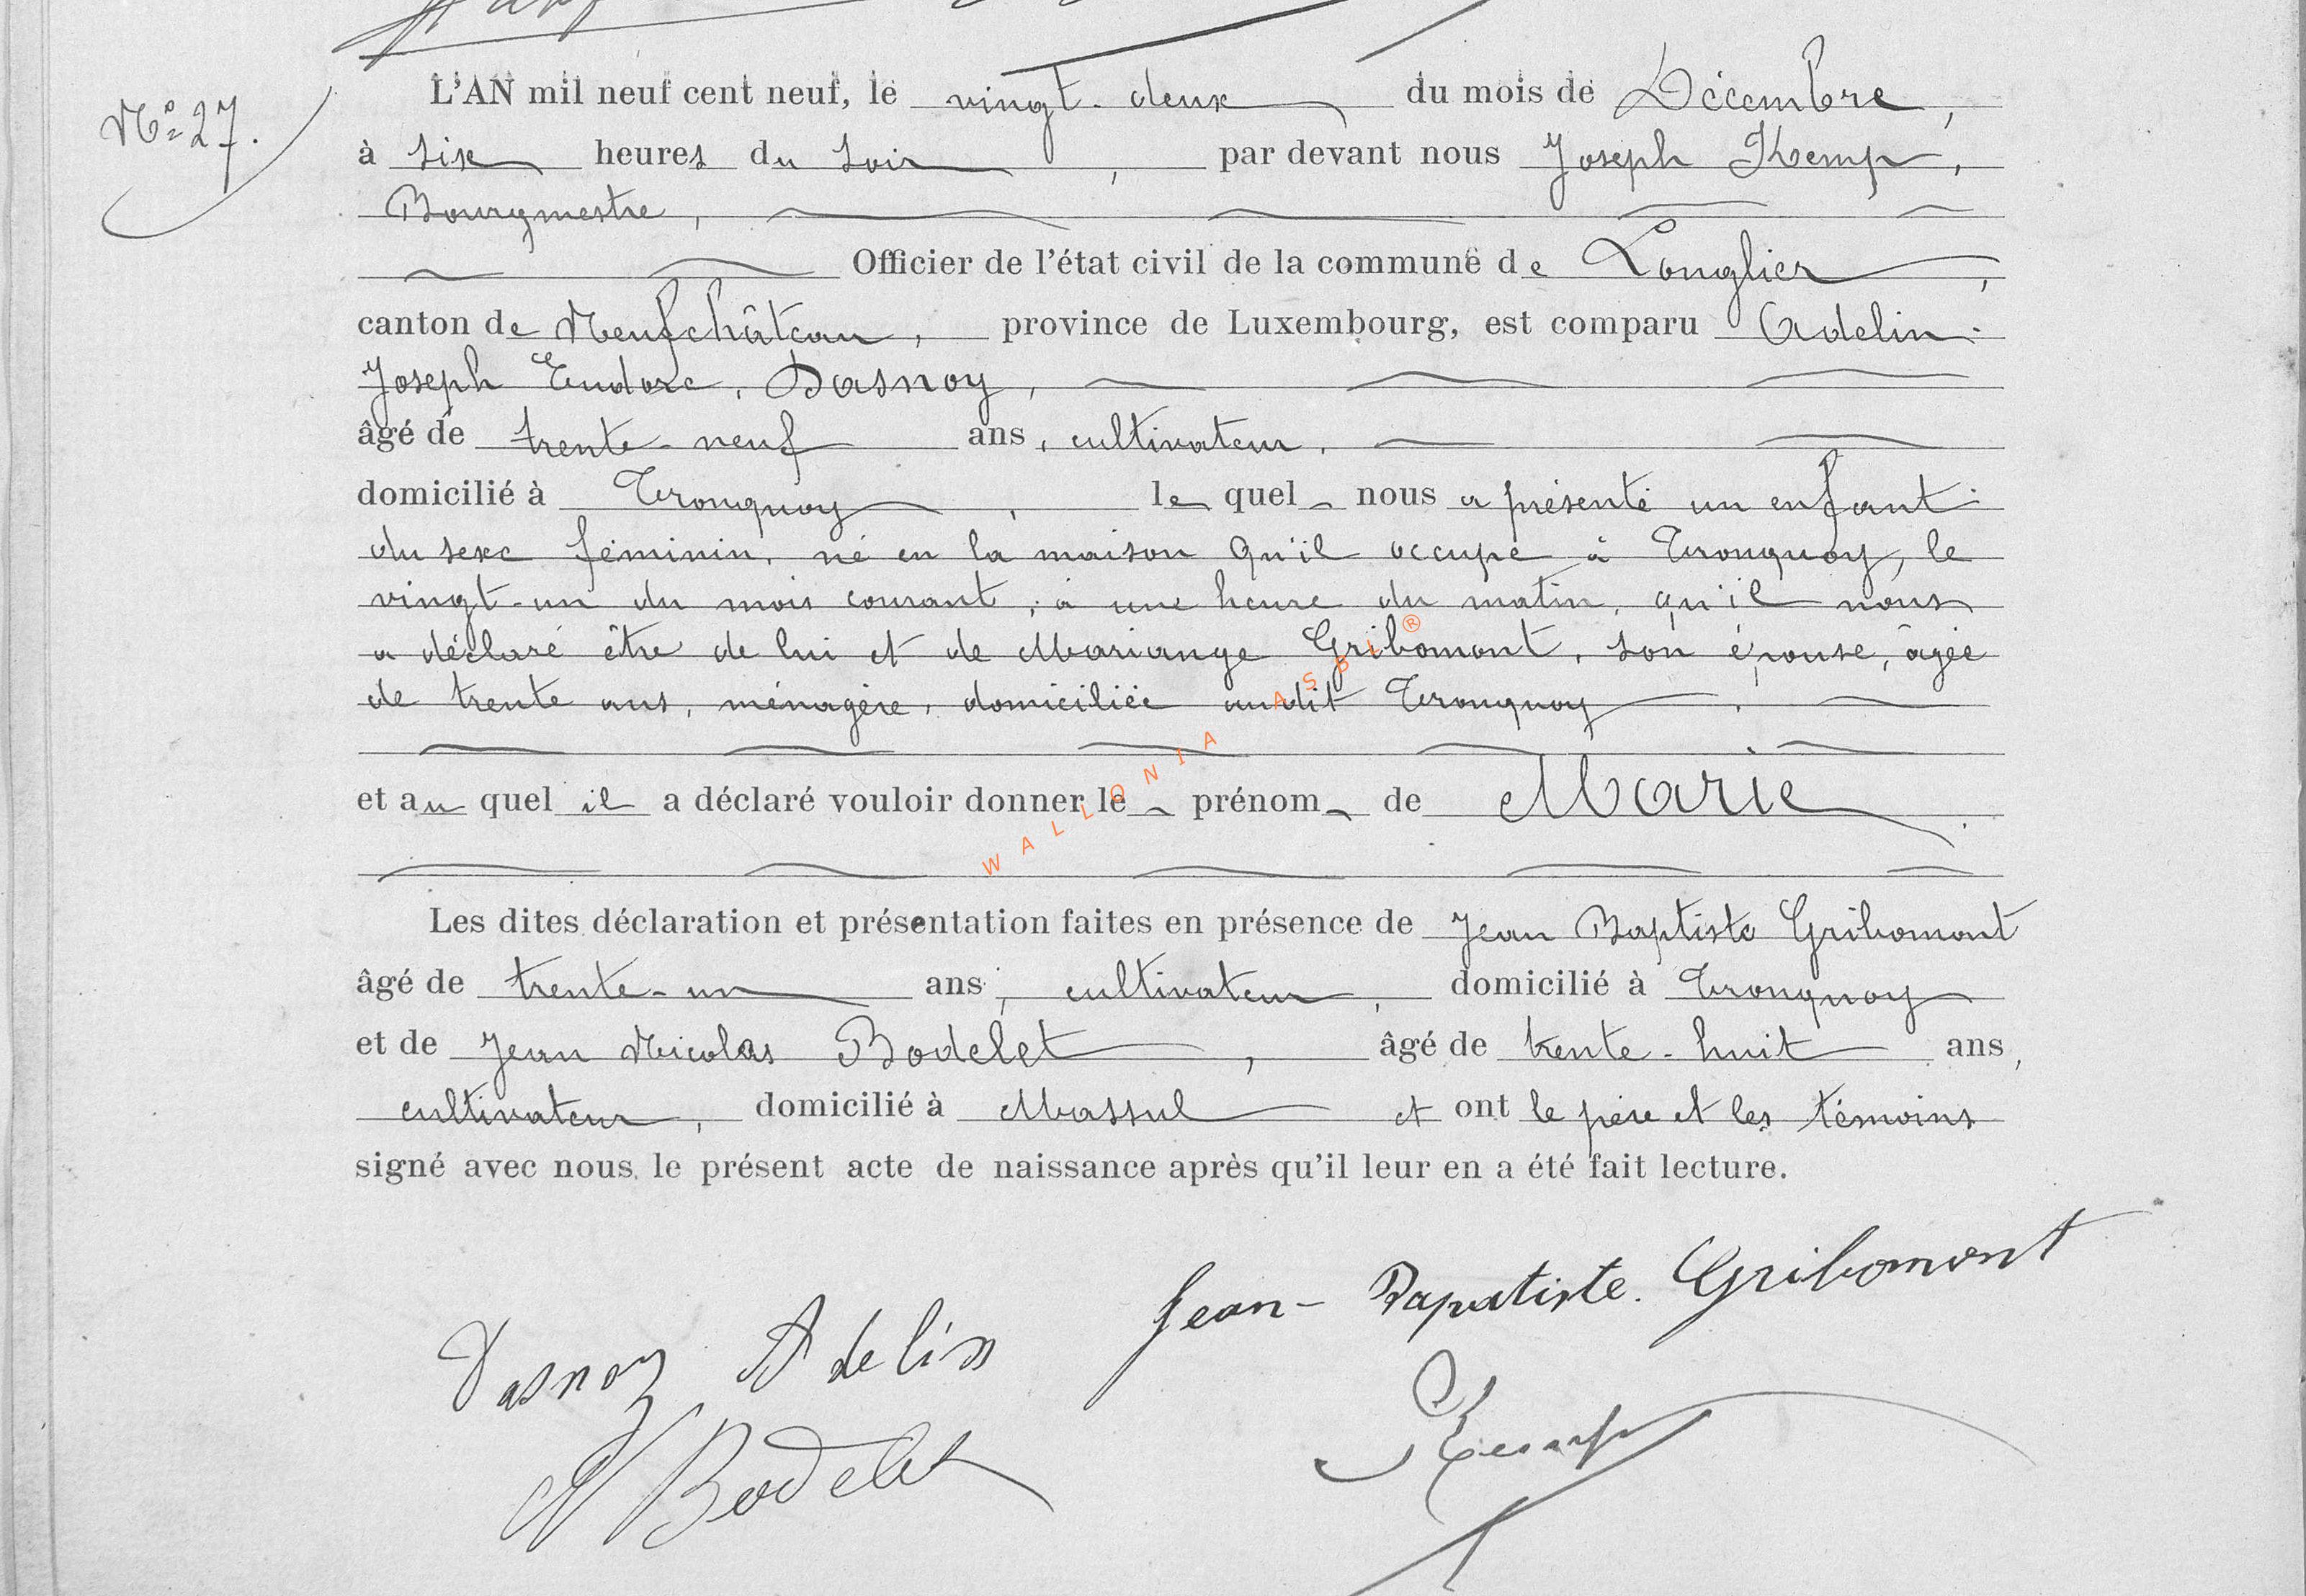 L'AN mil neuf cent neuf, le vingt-deux du mois de Décembre,
N° 27.
à six heures du soir, par devant nous Joseph Kemp,
Bourgmestre,
Officier de l'état civil de la commune de Longlier,
canton de Neufchâteau, province de Luxembourg, est comparu Adelin
Joseph Eudore Dasnoy,
âgé de trente-neuf ans, cultivateur,
domicilié à Tronquoy, le quel nous a présenté un enfant
du sexe féminin, né en la maison qu'il occupe à Tronquoy, le
vingt-un du mois courant, à une heure du matin, qu'il nous
a déclaré être de lui et de Mariange Gribomont, son épouse, âgée
de trente ans, ménagère, domiciliée audit Tronquoy.
et au quel il a déclaré vouloir donner le prénom de Marie.
WALLONIA ASBL ®
Les dites déclaration et présentation faites en présence de Jean Baptiste Gribomont
âgé de trente-un ans, cultivateur, domicilié à Tronquoy
et de Jean Nicolas Bodelet, âgé de trente-huit ans,
cultivateur, domicilié à Massul et ont le père et les témoins
signé avec nous le présent acte de naissance après qu'il leur en a été fait lecture.
Jean-Bapatiste. Gribomont
Dasnoy Adelin
Kemp
N Bodelet